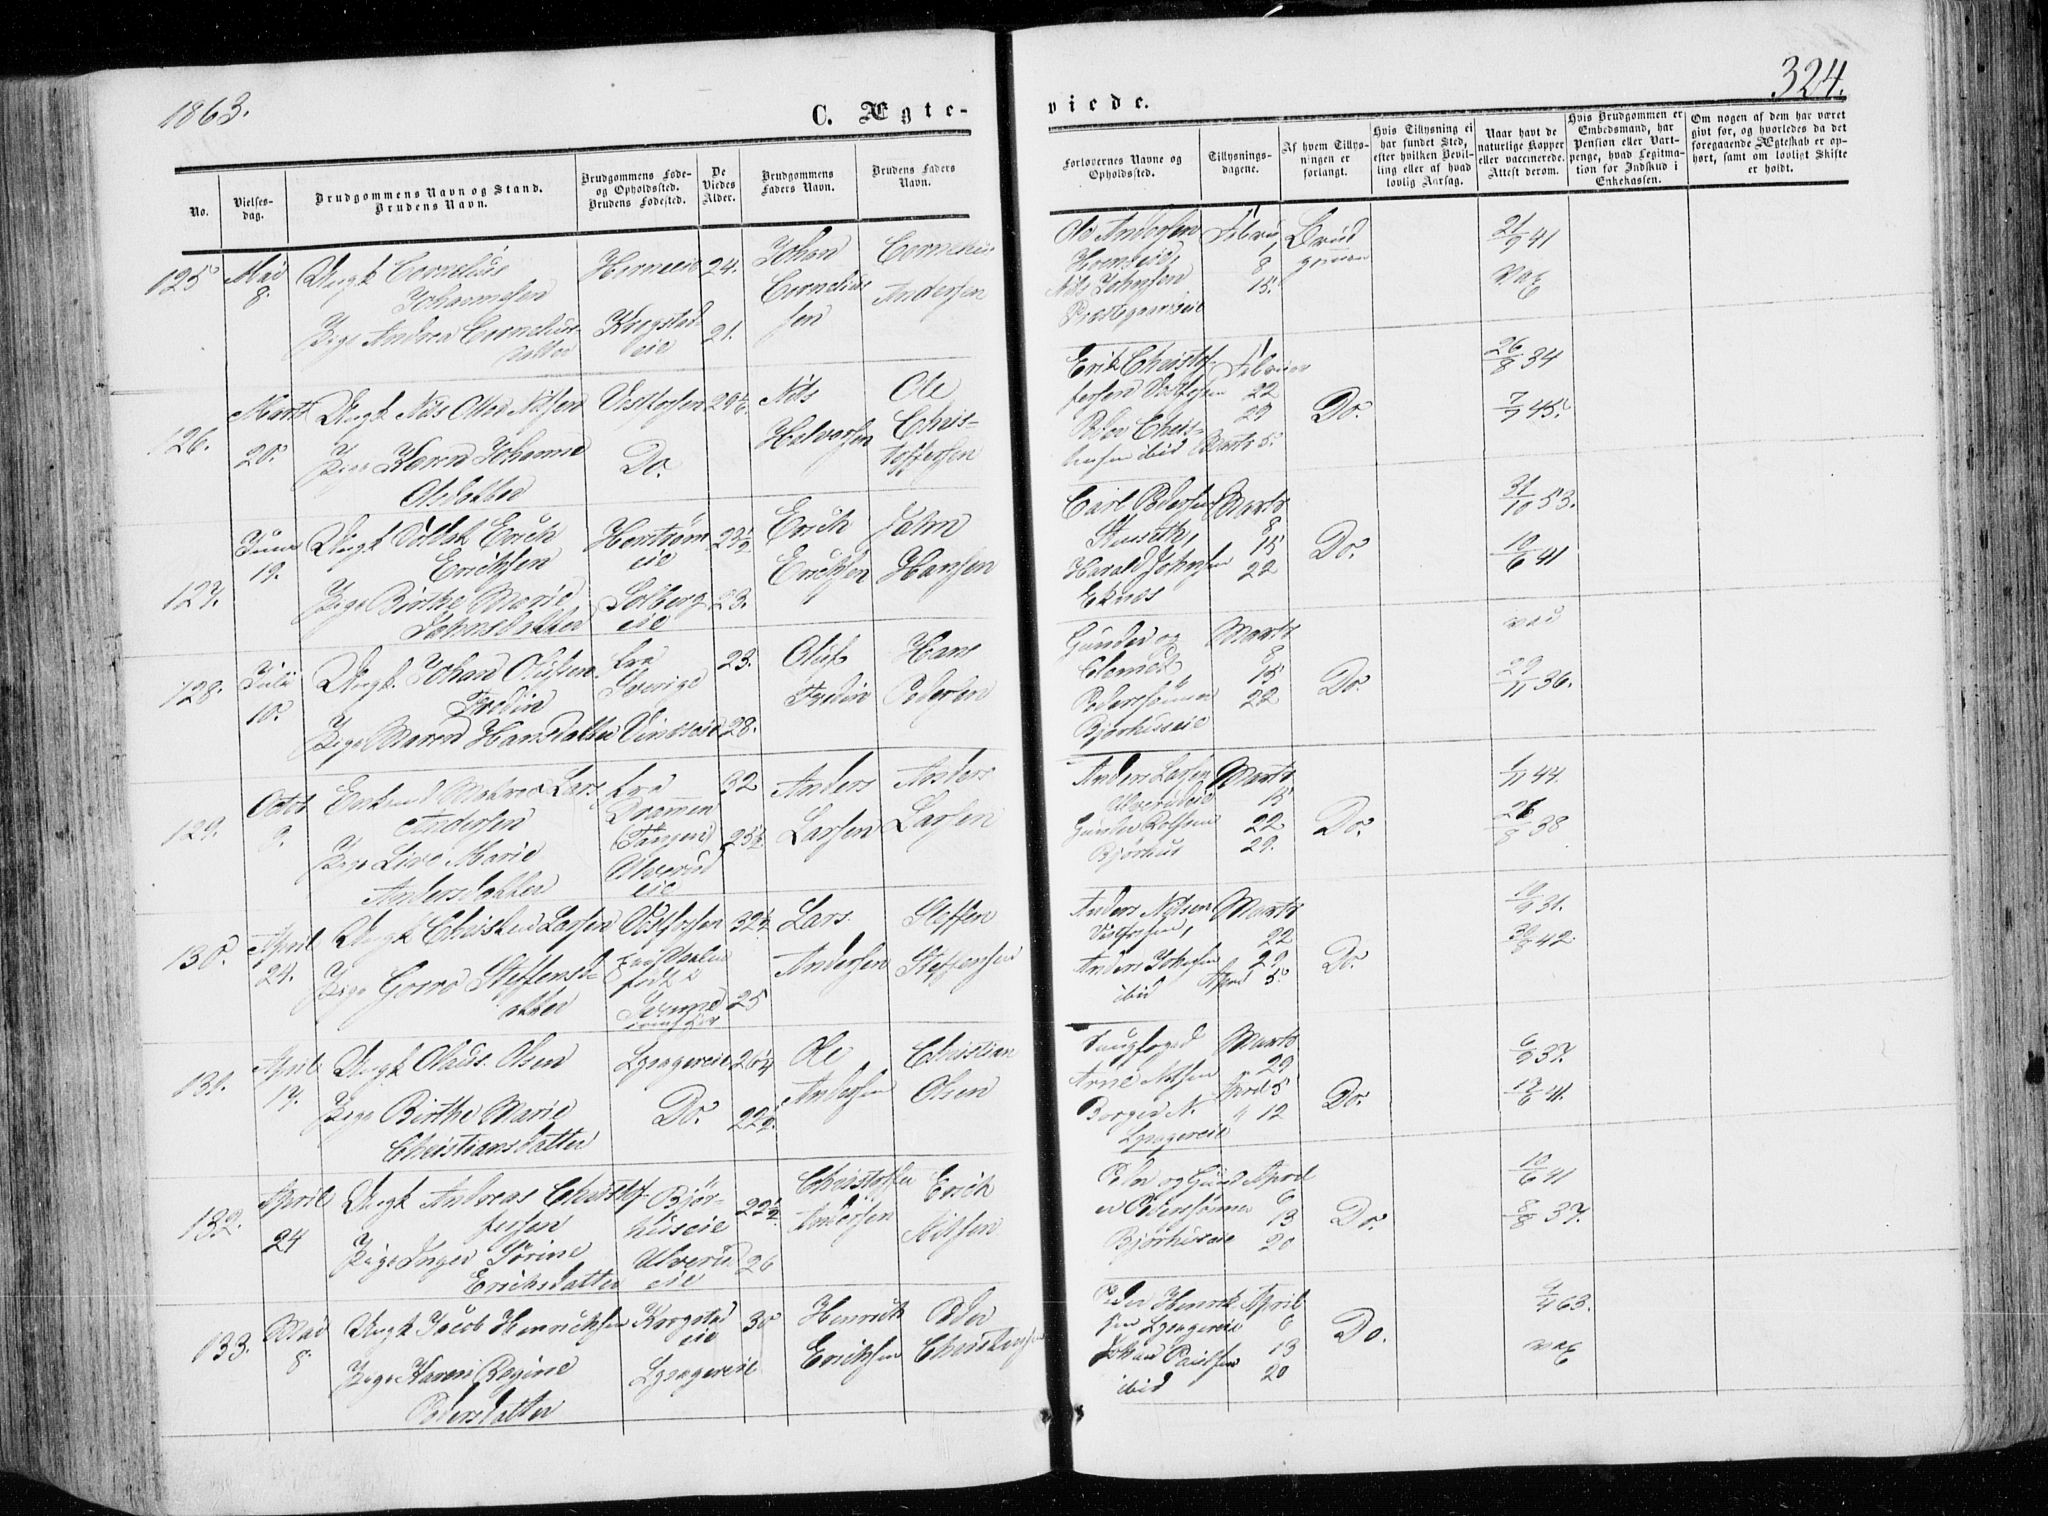 1863.
C. Ægte-
viede.
324.
No.
Vielses-
dag.
Brudgommens Navn og Stand.
Brudens Navn.
Brudgommens Føde-
og Opholdssted.
Brudens Fødested.
De
Viedes
Alder.
Brudgommens
Faders Navn.
Brudens Faders
Navn.
Forlovernes Navne og
Opholdssted.
Tillysnings-
dagene.
Af hvem Tillys-
ningen er
forlangt.
Hvis Tillysning ei
har fundet Sted,
efter hvilken Bevil-
ling eller af hvad
lovlig Aarsag.
Naar havt de
naturlige Kopper
eller vaccinerede.
Attest derom.
Hvis Brudgommen er
Embedsmand, har
Pension eller Vart-
penge, hvad Legitima-
tion for Indskud i
Enkekassen.
Om nogen af dem har været
givt for, og hvorledes da det
foregaaende Ægteskab er op-
hørt, samt om lovligt Skifte
er holdt.
125
Mai
8.
Ungk Cornelius
Johannesen
Pige Andrea Cornelius-
datter
Horneeie
Krogstad
eie
24.
21.
Johan
Cornelius
sen
Cornelius
Andersen
Ole Andersen
Horneeie
Nils Johnsen
Præstegaardseie
Februar
1
8
15.
Brud
gommen
21/9 41
vac
126.
Marts
20.
Ungk Nils Olea Nilsen
Pige Karen Johanne
Olsdatter
Vestfossen
Do.
Nils
Halvorsen
Ole
Chris-
toffersen
Erik Christof-
fersen Vestfossen
Peder Chris-
tensen ibid
Februar
22
29
Marts 5.
Do.
26/8 34
7/9 45.
127.
Juni
19.
Ungk Soldat Erich
Erichsen
Pige Birthe Marie
Jahnsdatter
Solberg
eie
23 1/2
23.
Erich
Erichsen
Jahn
Hansen
Carl Pedersen
Harald Johnsen
Eknes
Marts
8
15
22
Do.
31/10 53.
10/6 41
128.
Juli
10.
Ungk. Johan Olufsen
Fredin
Pige Maren Hansdatter
Fra
Sverige
23.
28.
Oluf
Fredin
Hans
Pedersen
Gunder og
Pedersønner
Bjørkuseie
Marts
8
15
22
Do.
vac
29/11 36.
129.
Octbr
9.
Enkemd Matros Lars
Andersen
Pige Lise Marie
Andersdatter
Fra
Drammen
(Tangen)
Ulverud
eie
32
25 1/2
Anders
Larsen
Anders
Larsen
Anders Larsen
Ulverudeie
Gunder Rolfsen
Bjørkus
Marts
15
22
29.
Do.
1/11 44.
26/8 38
130.
April
24.
Ungk Christen Larsen
Pige Goro Steffensd-
atter
Vestfossen
32 1/2
25
Lars
Andersen
Steffen
Steffensen
Anders Nilsen
Vestfossen,
Anders Johnsen
ibid
Marts
22
29
April 5.
Do.
10/9 31.
30/8 42.
131.
April
17.
Ungk Olaus Olsen
Pige Birthe Marie
Christiansdatter
Do.
26 1/4
22 1/2.
Ole
Andersen
Christian
Olsen
Arne Nilsen
Marts
29
April 5
" 12
Do.
6/9 37.
12/6 41.
132.
April
24
Ungk Andreas Christof-
fersen
Pige Inger Sørine
Erichsdatter
Bjør-
kuseie
Ulverud
eie
22 1/2
26
Christoffer
Andersen
Erich
Nilsen
Peder og Gund-
er Pedersønner
Bjørkuseie
April
6
13
20
Do.
10/6 41
8/8 37.
133.
Mai
8.
Ungk Jacob Henrichsen
Pige Karen Regine
Pedersdatter
Krogstad
eie
30
Henrich
Erichsen
Peder
Christensen
Peder Henrik-
sen
Johan Paulsen
ibid
April
6
13
20
Do.
9/4 63.
vac